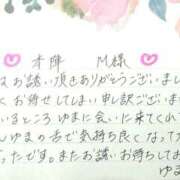 本陣 M様
はお誘い頂きありがとうございまし
くお待せしてしまい申し訳ございま
いるところ ゆまに会いに来てくれて
んゆまの舌で気持ち良くなって
ったです。またお誘いお待ちしてお
ゆま